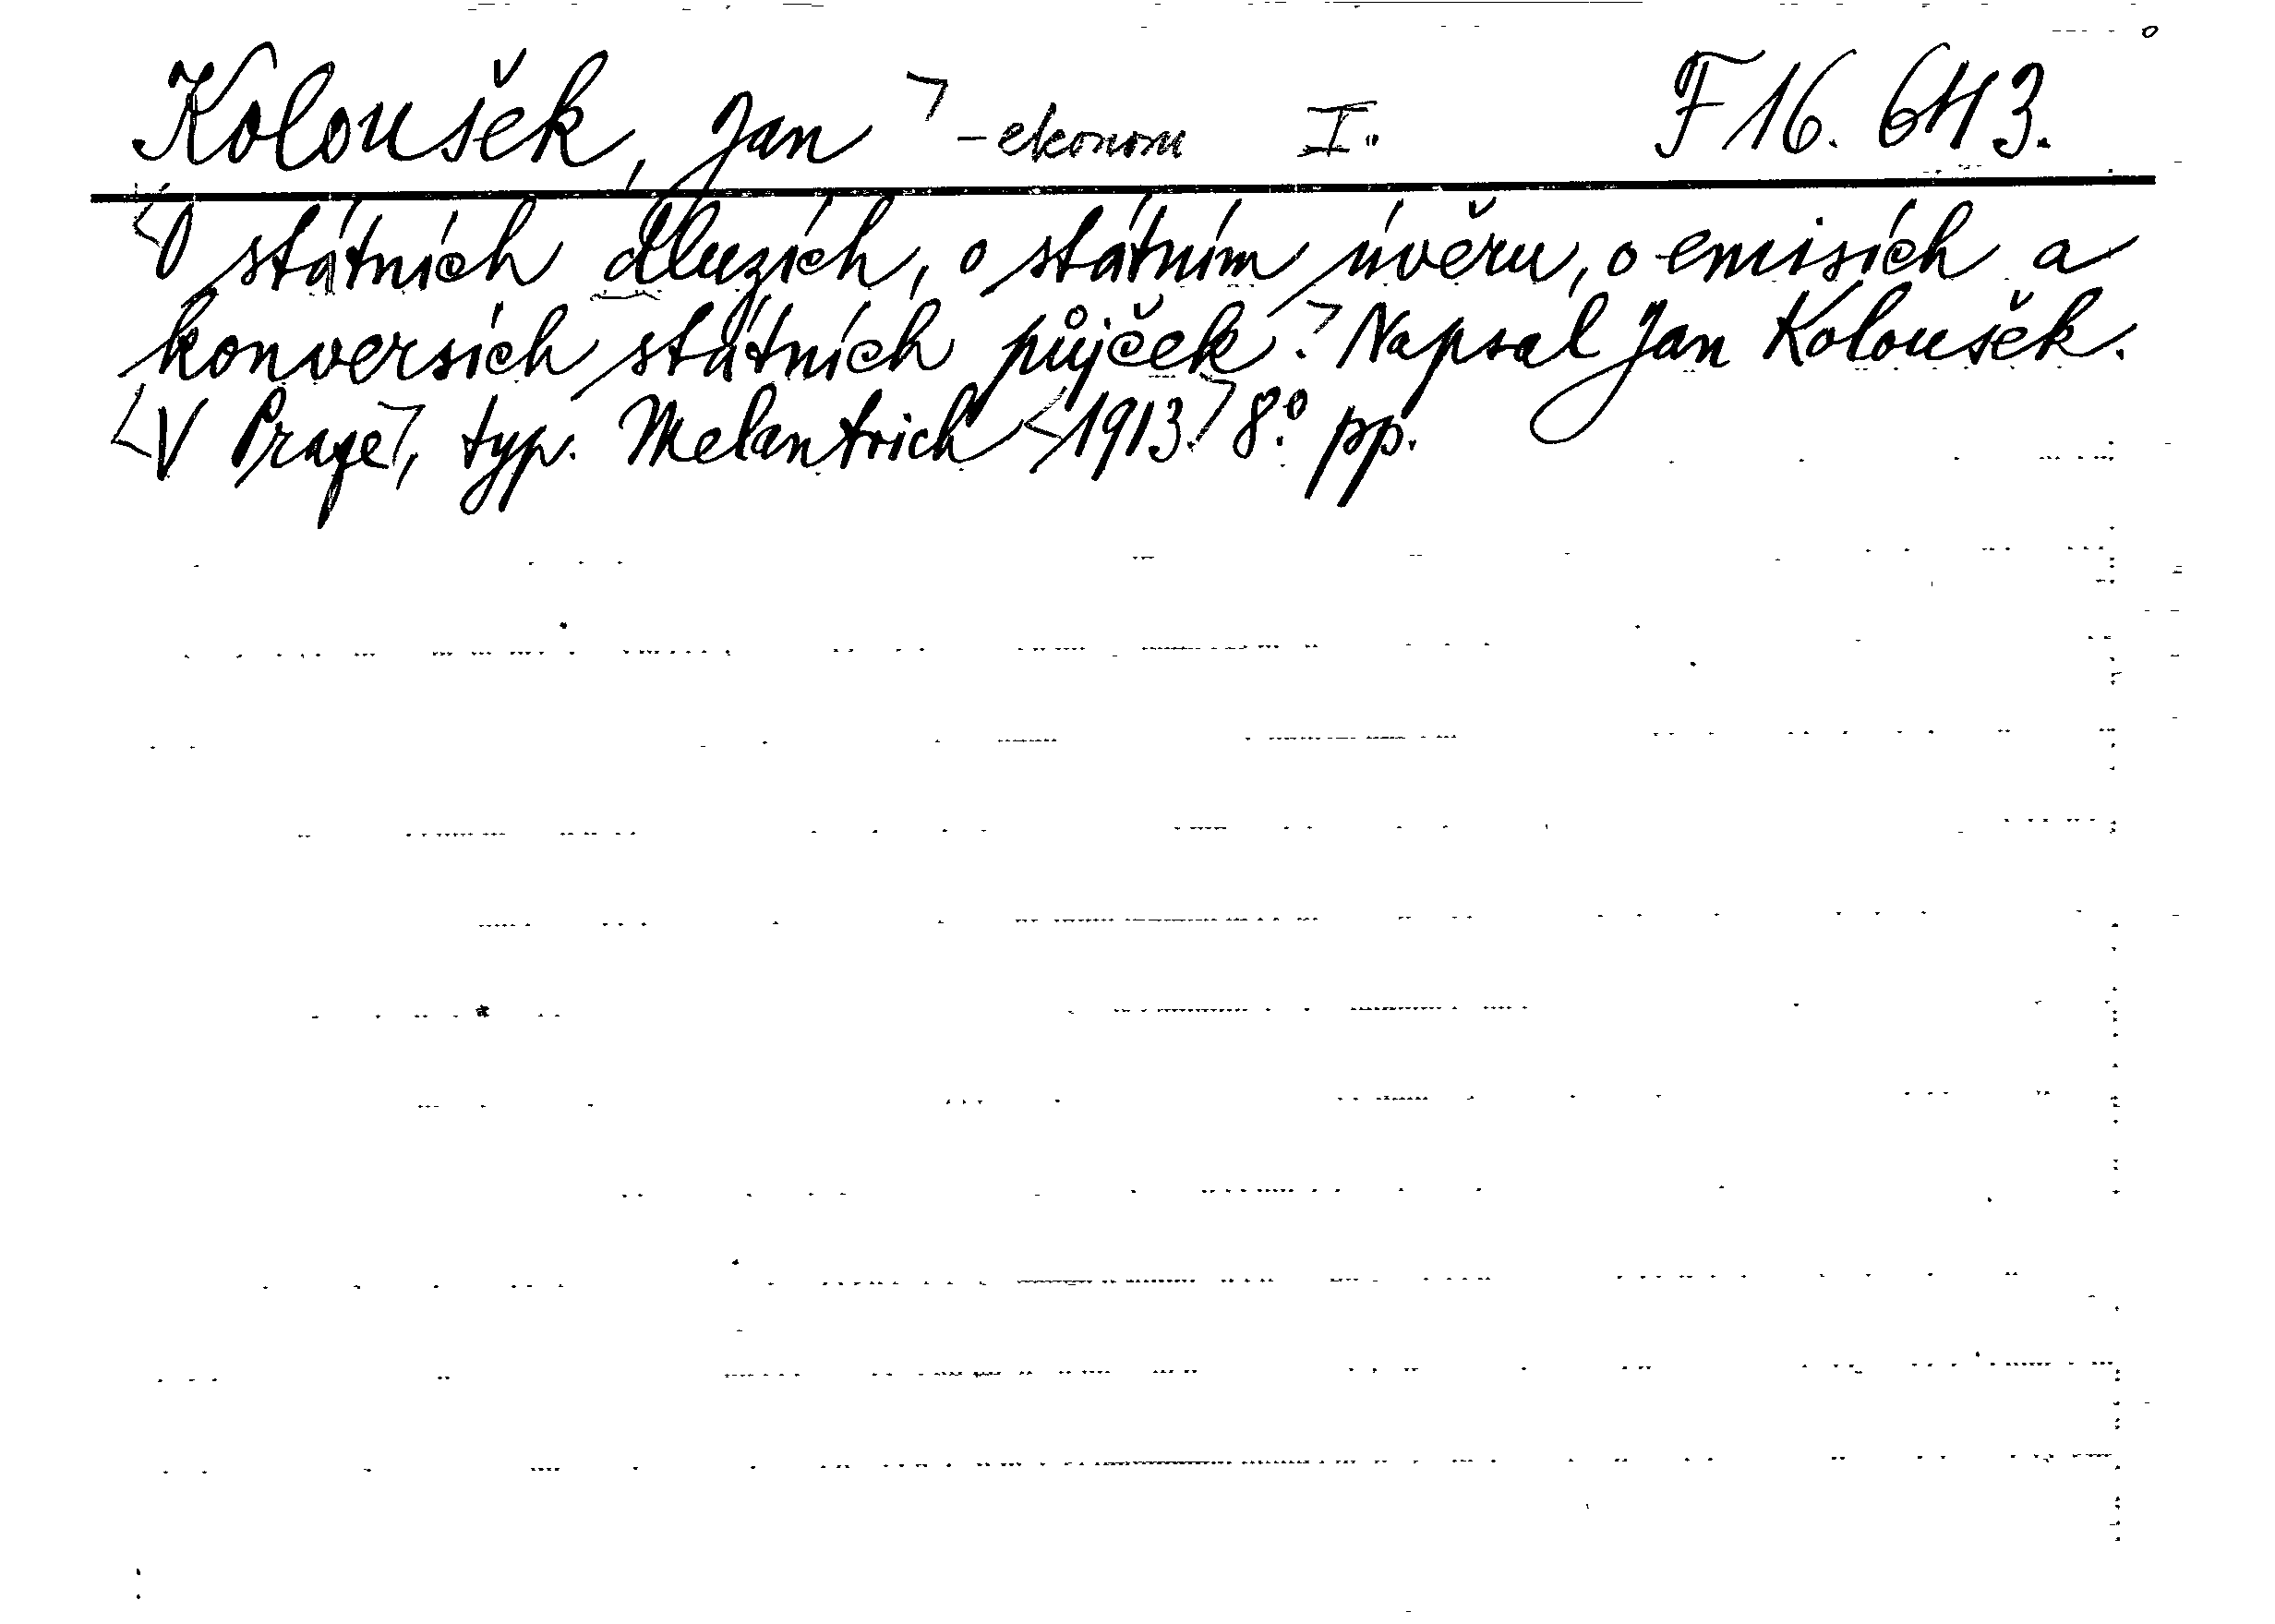 Koloušek, Jan ⌝ - ekonom I. F 16.643.
<O státních dluzích, o státním úvěru, o emisích a
konversích státních půjček.⌝ Napsal Jan Koloušek.
<V Praze⌝, typ. Melantrich <1913.⌝ 8.° pp.